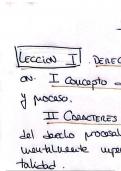 LECCION I. DEREC
ON. I Concepto
y proceso.
II CARACTERES
del derecho procesal
mentalmente impe
talidad.